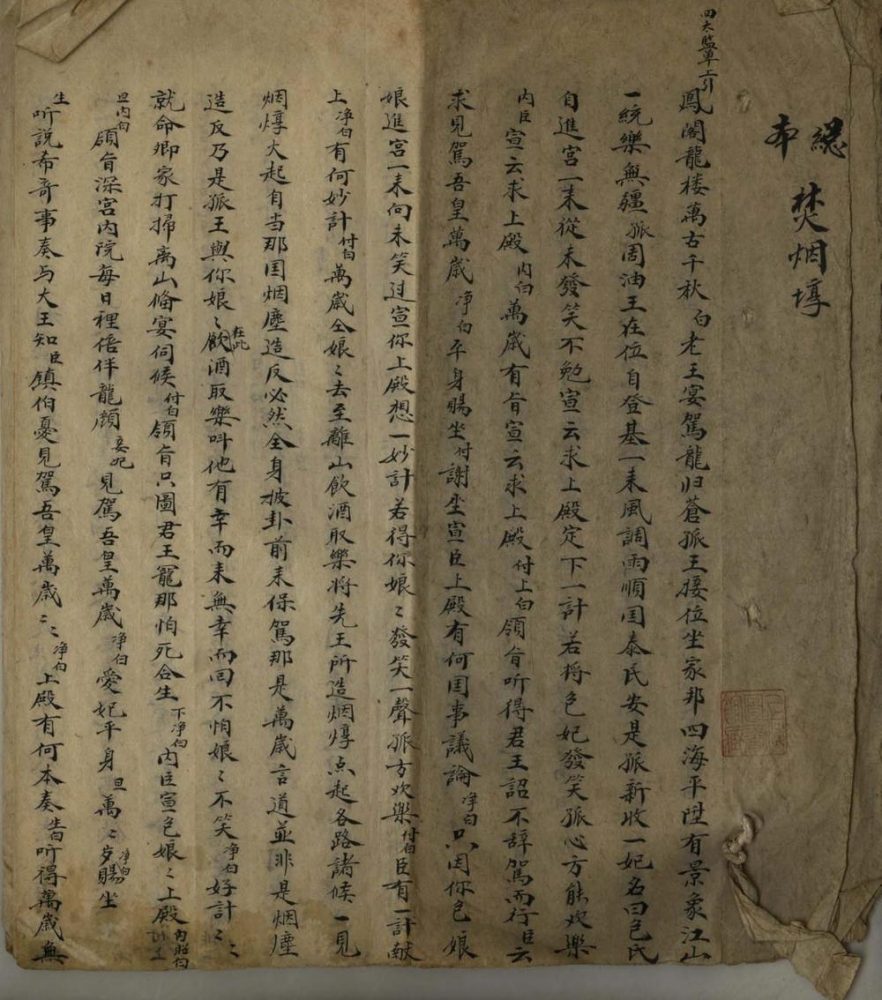 總本 焚烟墩
四太監車上引
鳳閣龍楼萬古千秋 白 老王宴駕龍归蒼孤王接位坐家邦四海平陞有景象江山
一統樂無疆孤周油王在位自登基一耒風調雨順国泰民安是孤新收一妃名曰包氏
自進宮一耒從未發笑不勉宣云求上殿定下一計若将包妃發笑孤心方能欢樂
内臣宣云求上殿 内白 萬歲有旨宣云求上殿 付上白 領旨听得君王詔不辞駕而行 臣云
求見駕吾皇萬歲 净白 平身賜坐 付 謝坐宣臣上殿有何国事議論 净白 只因你包娘
娘進宮一耒向未笑过宣你上殿想一妙計若得你娘〻發笑一聲孤方欢樂 付白 臣有一計献
上 净白 有何妙計 付白 萬歲仝娘〻去至離山飲酒取樂将先王所造烟墩点起各路諸候一見
烟墩火起自当那国烟塵造反必然全身披卦前耒保駕那是萬歲言道並非是烟塵
造反乃是孤王與你娘〻在此飲酒取樂呌他有幸而耒無幸而回不怕娘〻不笑 净白 好計〻〻
就命卿家打掃离山偹宴伺候 付白 領旨只圖君王寵那怕死合生 下净白 内臣宣包娘〻上殿 内照白
旦内白 領旨深宮内院每日裡倍伴龍顔 妾妃 見駕吾皇萬歲 净白 愛妃平身 旦 萬〻岁 净白 賜坐
生 听説希奇事奏与大王知 臣 鎮伯憂見駕吾皇萬歲〻〻 净白 上殿有何本奏 生白 听得萬歲無